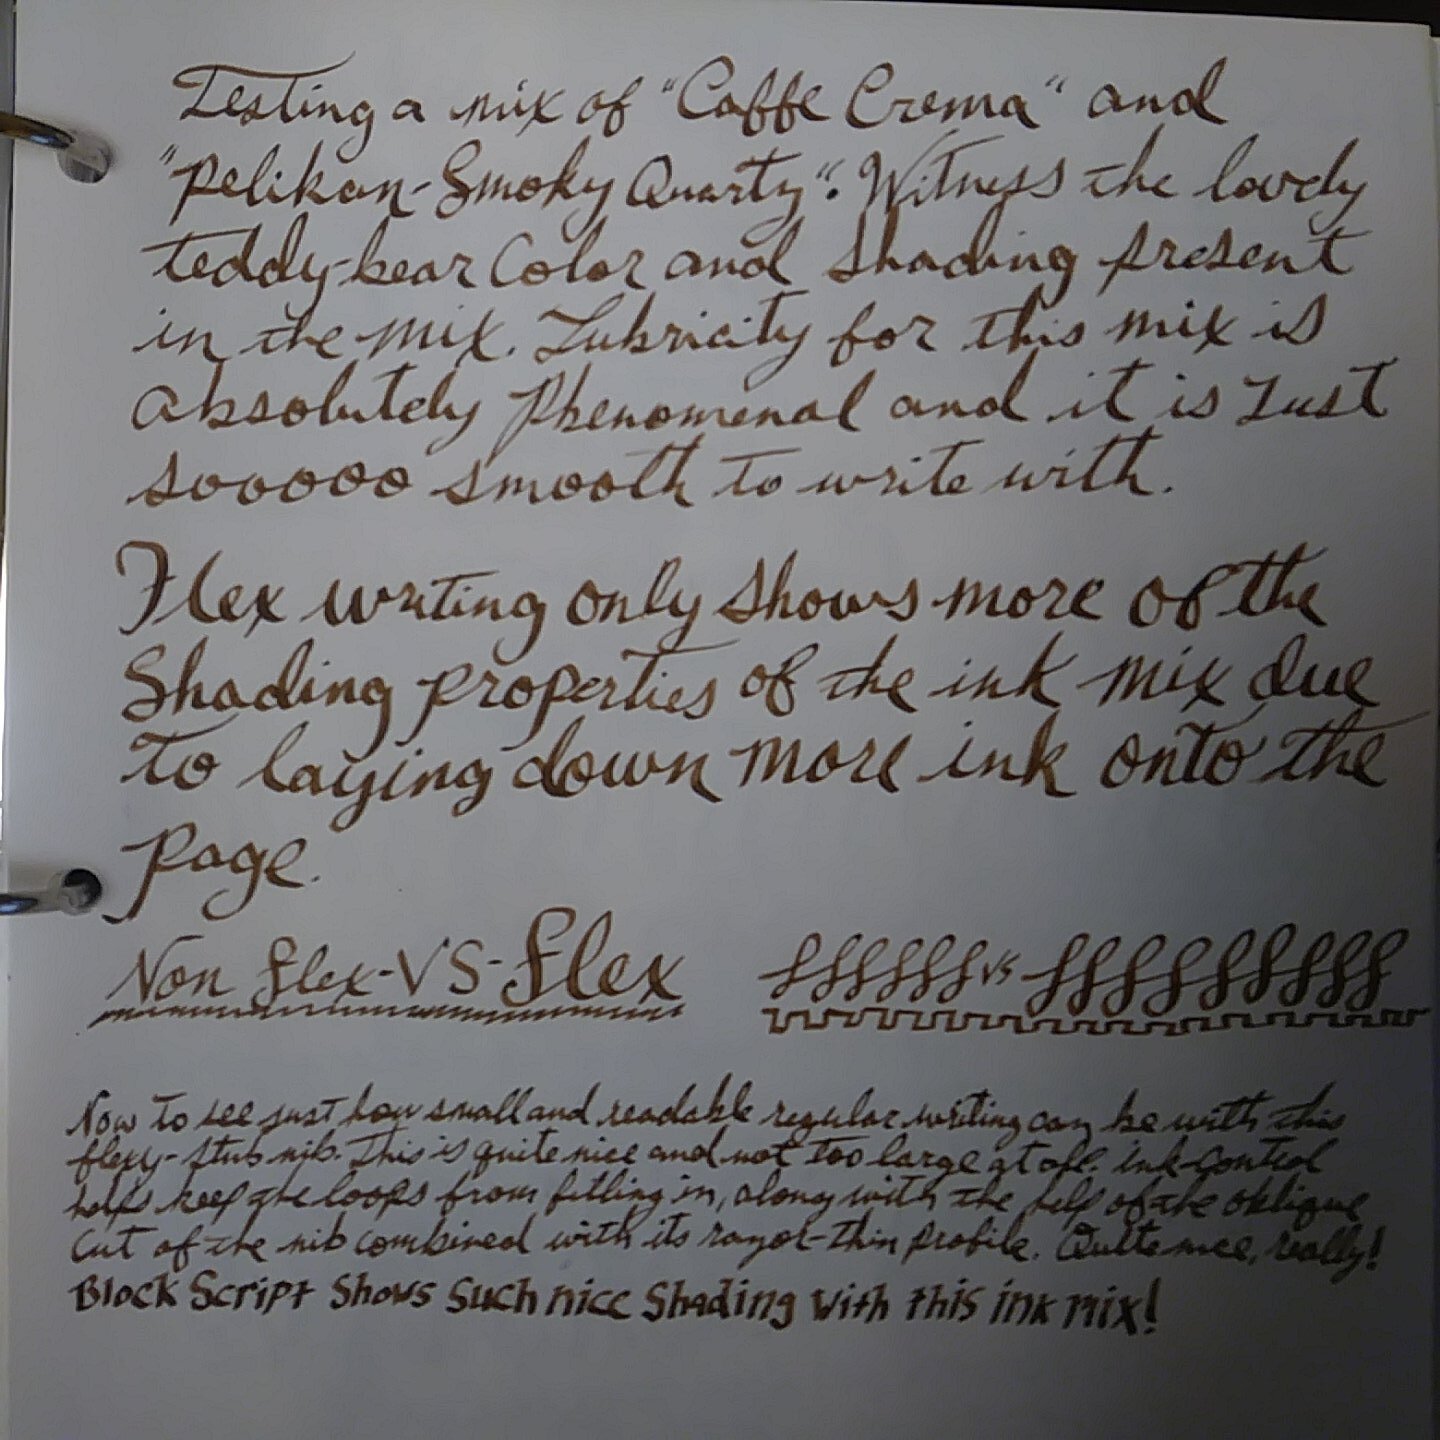 Testing a mix of "Caffe Crema" and
"Pelikan-Smoky Quartz". Witness the lovely
teddy-bear Color and Shading present
in the mix. Lubricity for this mix is
absolutely phenomenal and it is Just
sooooo smooth to write with.
Flex writing only shows more of the
Shading properties of the ink mix due
to laying down more ink onto the
page.
Non flex-VS-flex
ffffff vs fffffffff
Now to see just how small and readable regular writing can be with this
flexy-stub nib. This is quite nice and not too large at all. ink-control
helps keep the loops from filling in, along with the help of the oblique
Cut of the nib combined with its razor-thin profile. Quite nice, really!
Block Script Shows Such nice Shading With this ink mix!